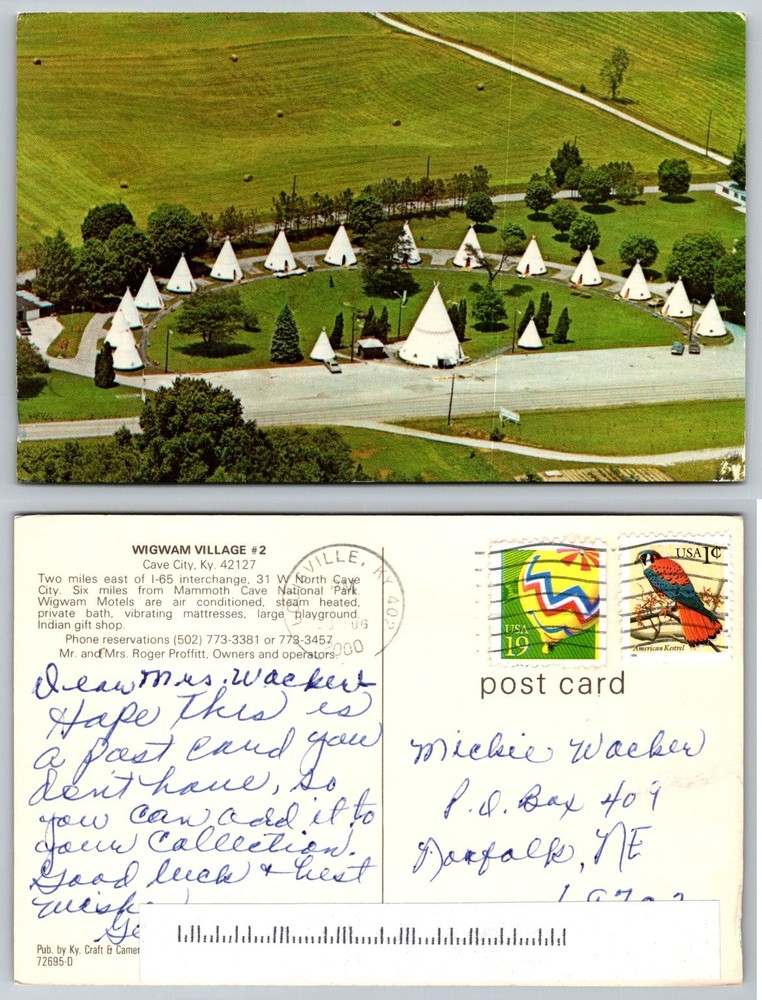 WIGWAM VILLAGE #2
Cave City, Ky. 42127
Two miles east of I-65 interchange, 31 W North Cave
City. Six miles from Mammoth Cave National Park.
Wigwam Motels are air conditioned, steam heated,
private bath, vibrating mattresses, large playground.
Indian gift shop.
Phone reservations (502) 773-3381 or 773-3457
Mr. and Mrs. Roger Proffitt, Owners and operators.
VILLE, KY 402
2000
USA
19
USA 1¢
American Kestrel
post card
Dear Mrs. Wacker
Hope this is
a post card you
don't have, so
you can add it to
your collection.
Good luck & best
Mickie Wacker
P.O. Box 409
Norfolk, NE
Pub. by Ky. Craft &
72695-D